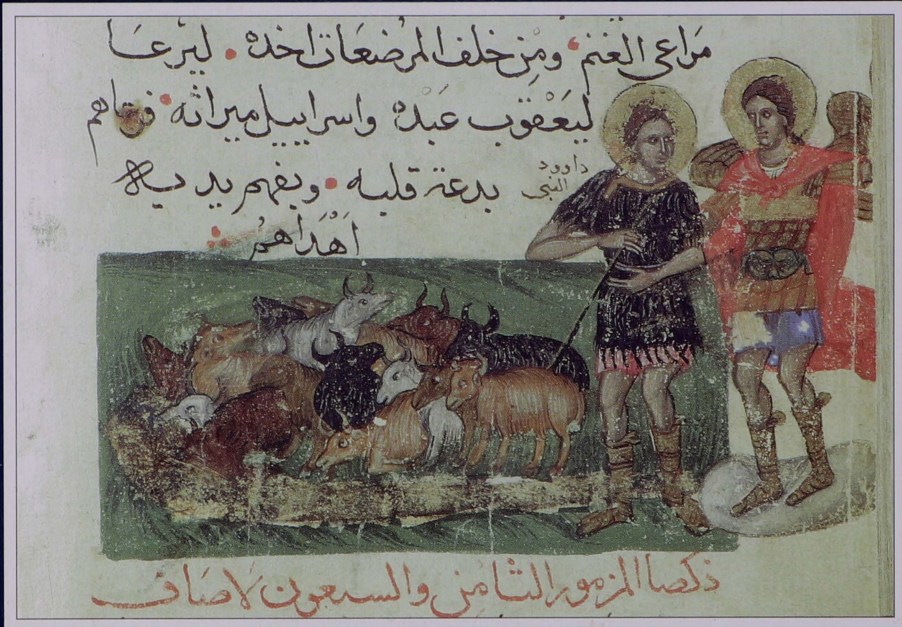 مَرَاعي الغنم، ومِن خلف المرضعَات اخده. ليَرعَا
ليَعْقوب عَبْدهُ واسراييل ميراثه. فرعاهم
بدعة قلبه. وبفهم يديه
اهْدَاهُم
داوود
النبى
المزمور الثامن والسبعون لاصَاف